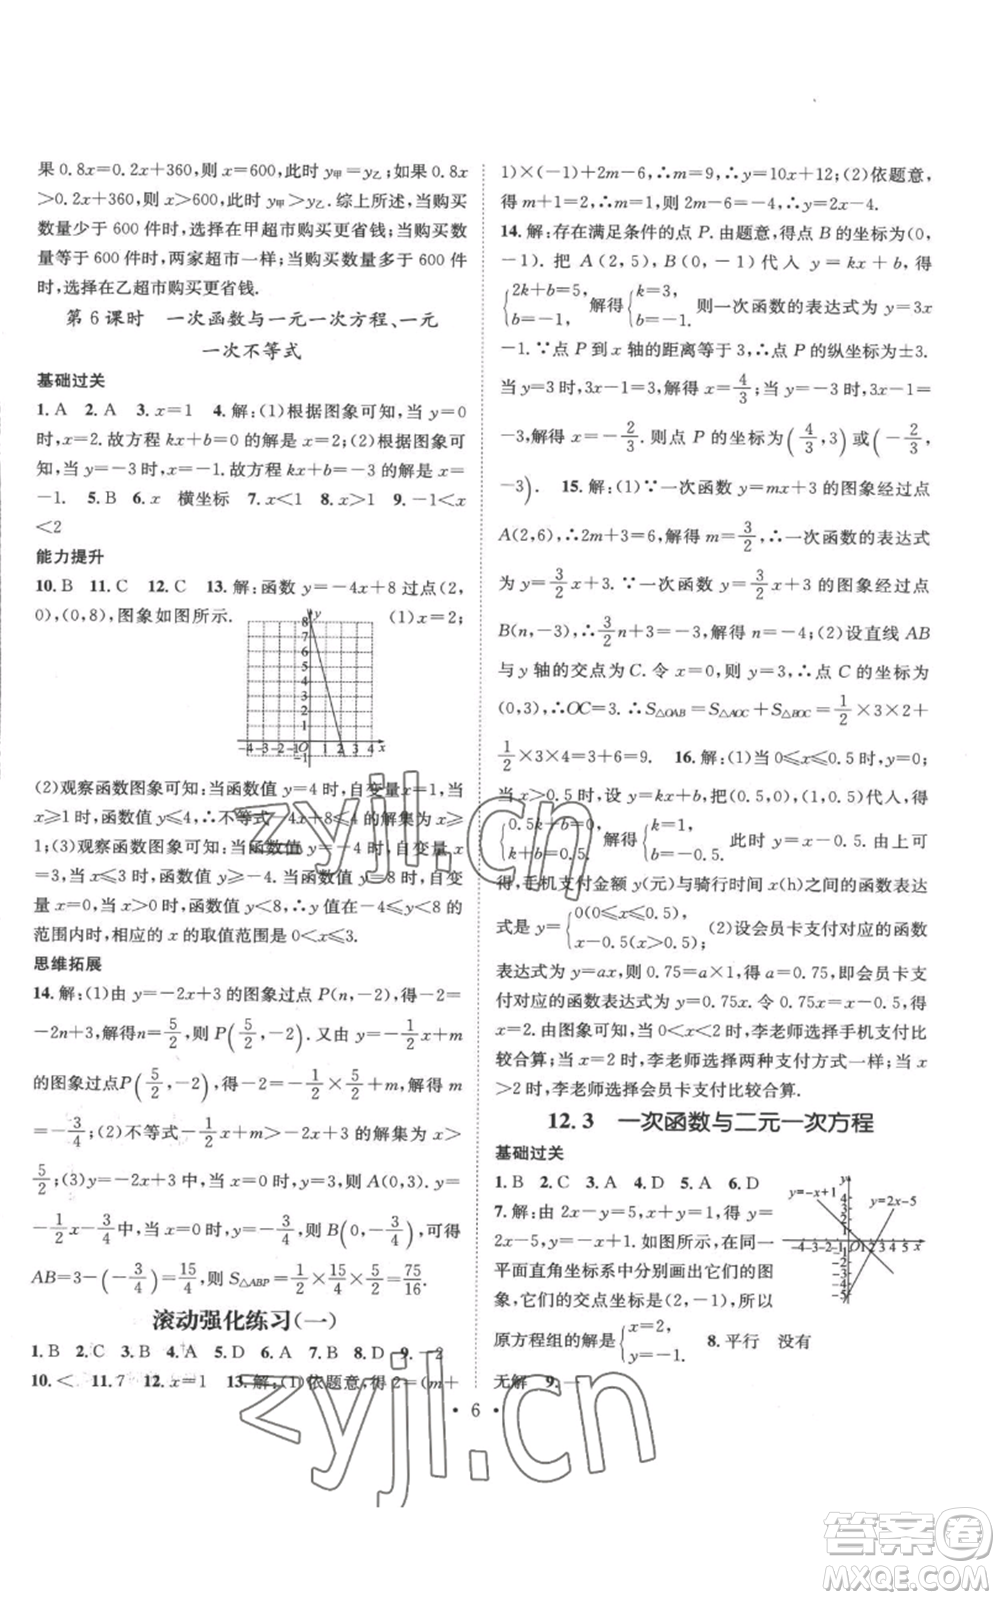 果 0.8x=0.2x+360,则 x=600,此时 y甲=y乙;如果 0.8x
>0.2x+360,则 x>600,此时 y甲>y乙.综上所述,当购买
数量少于 600 件时,在甲超市购买更省钱;当购买数
量等于 600 件时,两家超市一样;购买数量多于 600 件
时,选择在乙超市购买更省钱.
第 6 课时 一次函数与一元一次方程、一元
一次不等式
基础过关
1. A 2. A 3. x=1 4. 解:(1)根据图象可知,当 y=0
时,x=2.故方程 kx+b=0 的解是 x=2;(2)根据图象可
知,当 y=-3 时,x=-1.故方程 kx+b=-3 的解是 x=
-1. 5. B 6. x 横坐标 7. x<1 8. x>1 9. -1<x
<2
能力提升
10. B 11. C 12. C 13. 解:函数 y=-4x+8 过点(2,
0),(0,8),图象如图所示. (1)x=2;
(2)观察函数图象可知:当函数值 y=4 时,自变量 x=1,当
x≥1 时,函数值 y≤4,∴不等式-4x+8≤4 的解集为 x≥
1;(3)观察函数图象可知:当函数值 y=-4 时,自变量 x
=3,当 x≤3 时,函数值 y≥-4.当函数值 y=8 时,自变量
x=0,当 x>0 时,函数值 y<8,∴y 值在-4≤y<8 的
范围内时,相应的 x 的取值范围是 0<x≤3.
思维拓展
14. 解:(1)由 y=-2x+3 的图象过点 P(n,-2),得-2=
-2n+3,解得n=5/2,则 P(5/2,-2). 又由 y=-1/2x+m
的图象过点P(5/2,-2),得-2=-1/2×5/2+m,解得 m
=-3/4;(2)不等式-1/2x+m>-2x+3 的解集为 x>
5/2;(3)当 x=0 时,y=-2x+3 中,y=3,故 A(0,3).y=
-1/2x-3/4中,当 x=0 时,y=-3/4,则 B(0,-3/4),可得
AB=3-(-3/4)=15/4,则 S△ABP=1/2×15/4×5/2=75/16.
滚动强化练习(一)
1. B 2. C 3. B 4. A 5. D 6. A 7. B 8. D 9. -2
10. < 11. 7 12. x=1 13. 解:(1)依题意,得 2=(m+
1)×(-1)+2m-6,∴m=9,∴y=10x+12;(2)依题意,
得 m+1=2,解得 2m-6=-4,∴y=2x-4.
14. 解:存在满足条件的点 P.由题意,得点 B 的坐标为(0,
-1). 把 A(2,5),B(0,-1)代入 y=kx+b,得
{2k+b=5, b=-1, 解得{k=3, b=-1. 则一次函数的表达式为 y=3x
-1.∵点 P 到 x 轴的距离等于 3,∴点 P 的纵坐标为±3.
当 y=3 时,3x-1=3,解得 x=4/3;当 y=-3 时,3x-1=
-3,解得 x=-2/3.则点 P 的坐标为(4/3,3)或(-2/3,
-3). 15. 解:(1)∵一次函数 y=mx+3 的图象经过点
A(2,6),∴2m+3=6,解得 m=3/2,∴一次函数的表达式
为 y=3/2x+3.∵一次函数 y=3/2x+3 的图象经过点
B(n,-3),∴3/2n+3=-3,解得 n=-4;(2)设直线 AB
与 y 轴的交点为 C.令 x=0,则 y=3,∴点 C 的坐标为
(0,3),∴OC=3.∴S△OAB=S△AOC+S△BOC=1/2×3×2+
1/2×3×4=3+6=9. 16. 解:(1)当 0≤x≤0.5 时,y=0,
当 x>0.5 时,设 y=kx+b,把(0.5,0),(1,0.5)代入,得
{0.5k+b=0, k+b=0.5, 解得{k=1, b=-0.5. 此时 y=x-0.5. 由上可
得,手机支付金额 y(元)与骑行时间 x(h)之间的函数表达
式是 y={0(0≤x≤0.5), x-0.5(x>0.5);(2)设会员卡支付对应的函数
表达式为 y=ax,则 0.75=a×1,得 a=0.75,即会员卡支
付对应的函数表达式为 y=0.75x.令 0.75x=x-0.5,得
x=2.由图象可知,当 0<x<2 时,李老师选择手机支付
比较合算;当 x=2 时,李老师选择两种支付方式一样;当 x
>2 时,李老师选择会员卡支付比较合算.
12.3 一次函数与二元一次方程
基础过关
1. B 2. C 3. D 4. A 5. A 6. D
7. 解:由 2x-y=5,得 y=
2x-5,画出图象,如图.在同一
平面直角坐标系中分别画出它们的图
象,它们的交点坐标是(2,-1),所以
原方程组的解是{x=2, y=-1. 8. 平行 没有
无解
y=-x+1
y=2x-5
• 6 •
zyjl.cn
zyjl.cn
答案圈
MXQE.COM